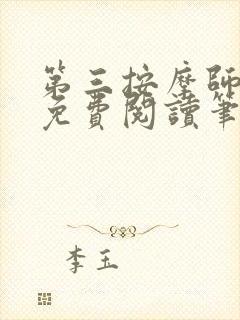 第三按摩師
免費閱讀筆
李玉